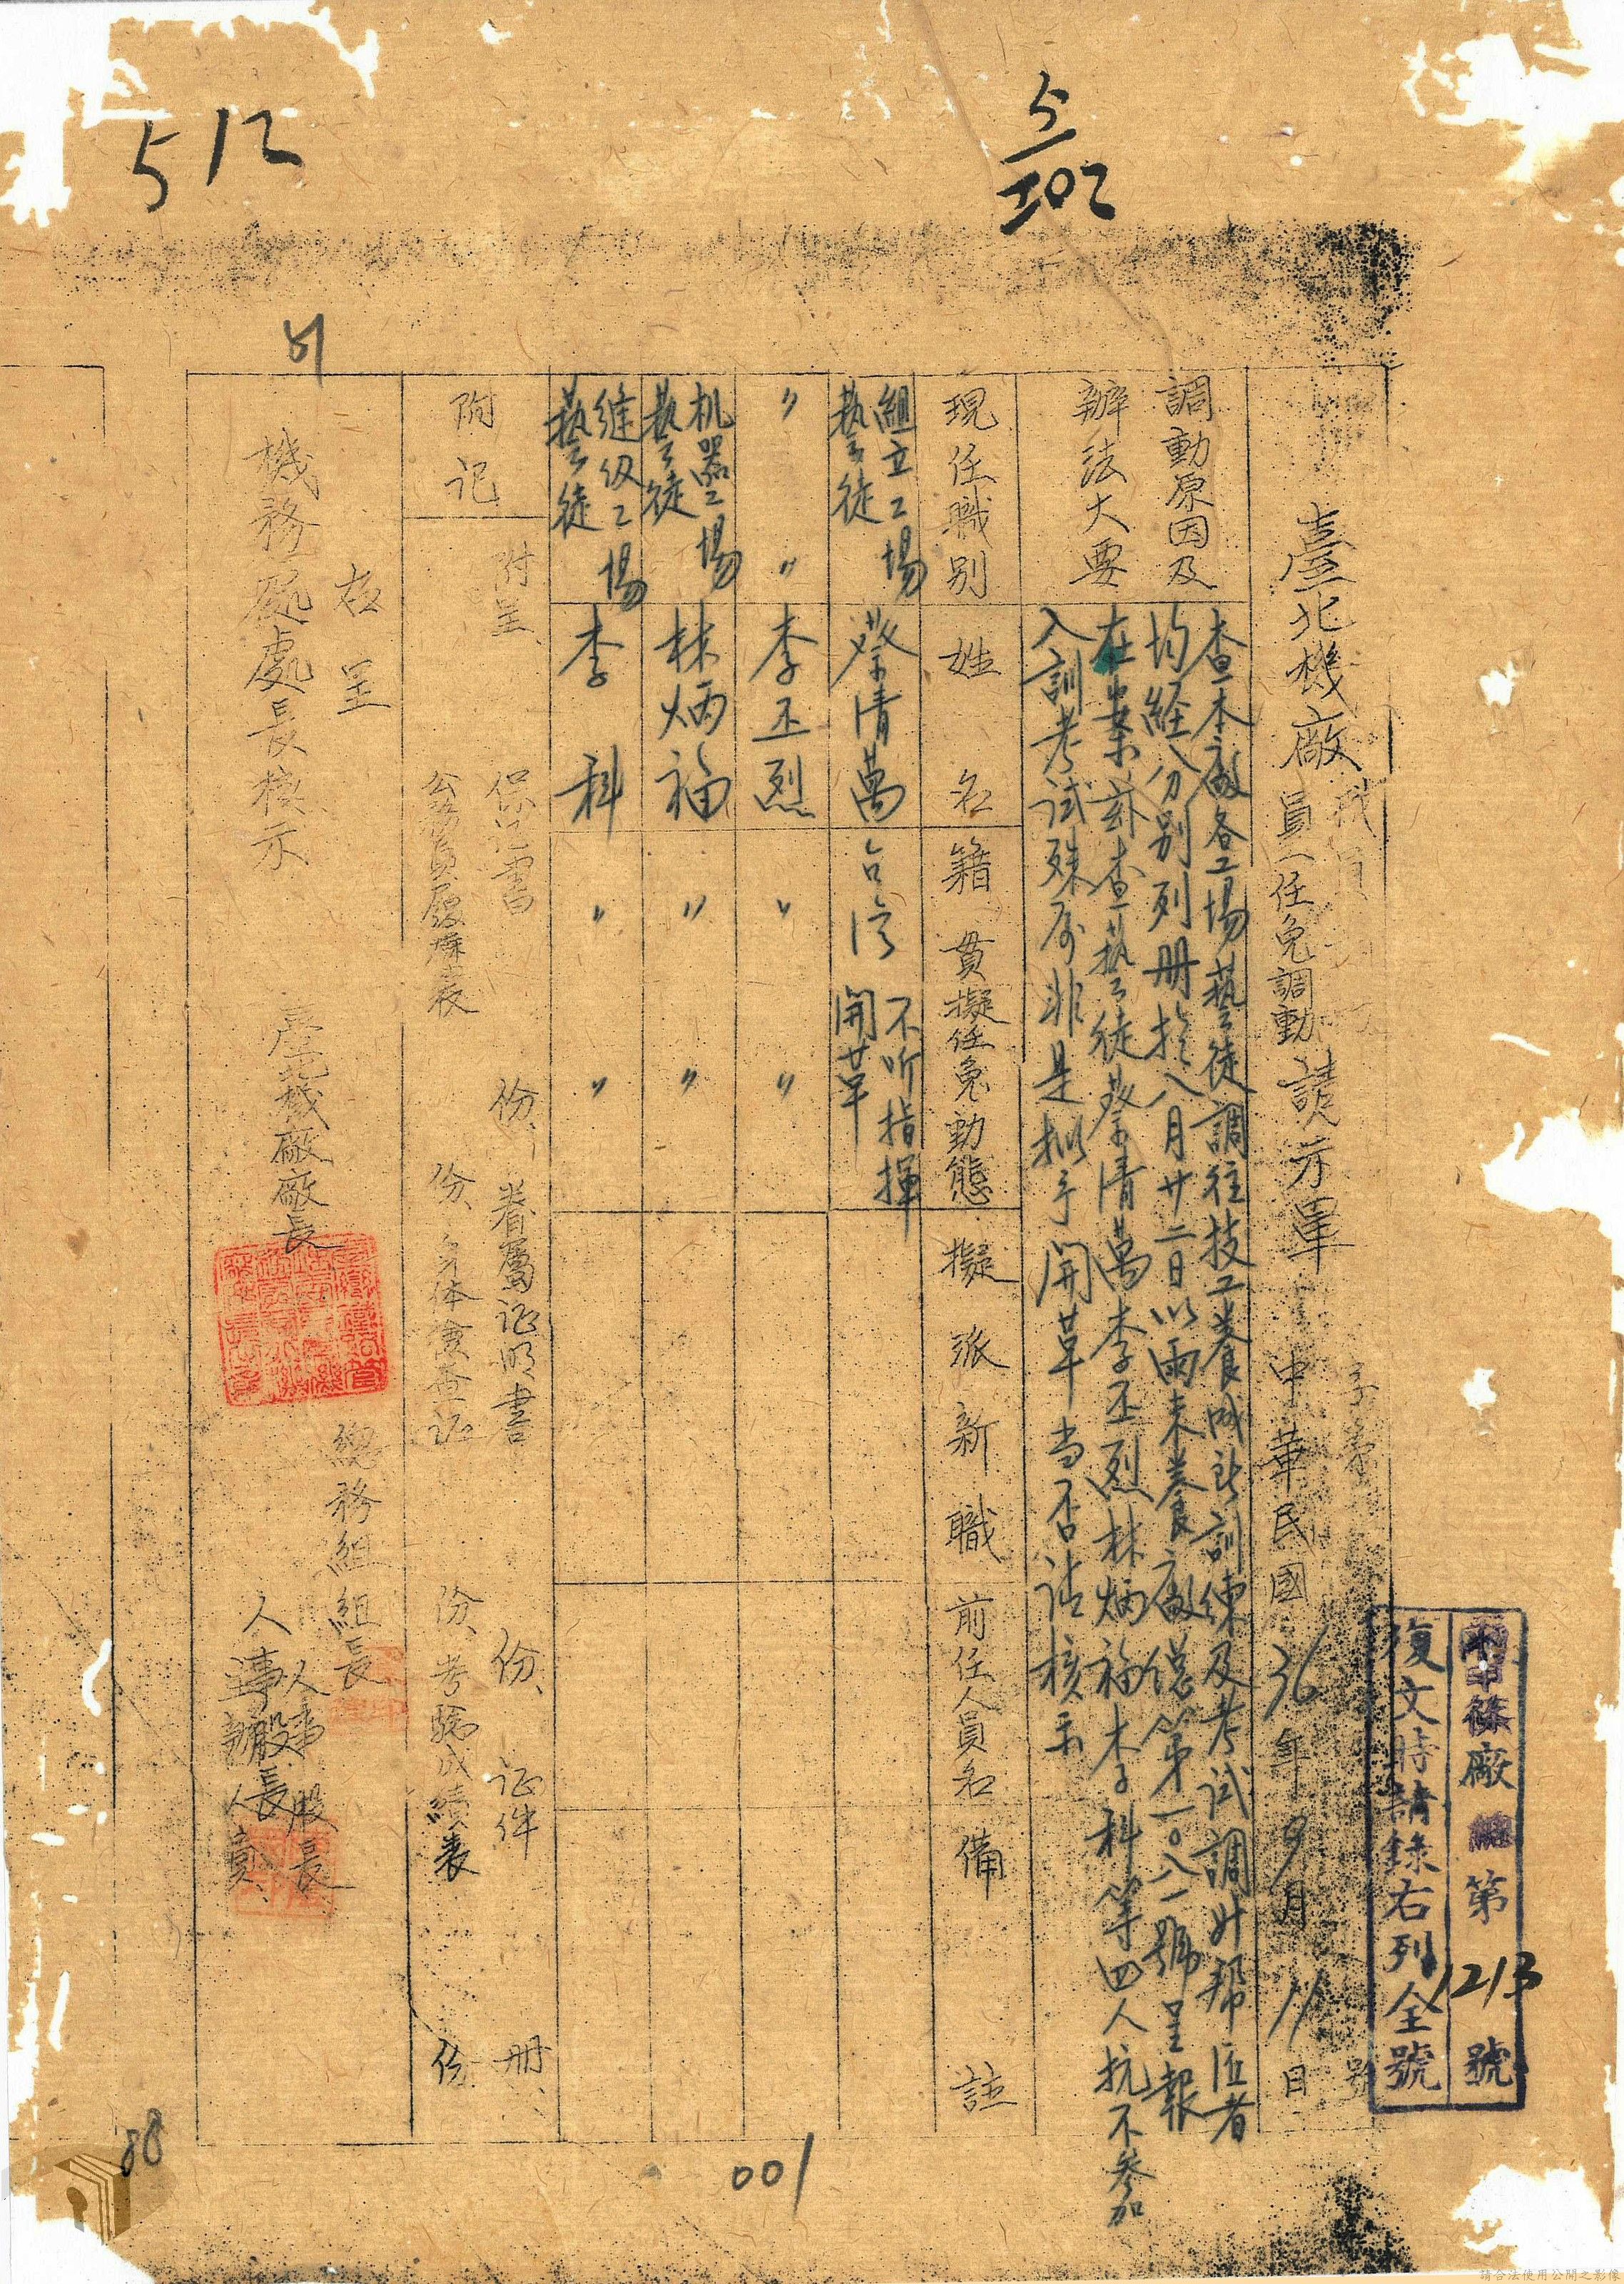 5/202
512
機篠廠總第1213號
復文時請錄右列全號
字第 號
臺北機廠員任免調動請示單 中華民國36年9月11日
調動原因及
辦法大要
查本廠各工場藝徒調往技工養成所訓練及考試調升幫匠者
均経分別列册於八月廿二日以雨未養廠總第一〇八一號呈報
在案茲查藝徒蔡清萬李丕烈林炳福李科等四人抗不參加
入訓考試殊属非是拟予開革当否請核示
現任職別 姓名 籍貫 擬任免動態 擬派新職 前任人員名 備註
組立工場藝徒 蔡清萬 台湾 不听指揮開革
〃 〃 李丕烈 〃 〃
机器工場藝徒 林炳福 〃 〃
縫级工場藝徒 李科 〃 〃
附記
附呈 保证書 份、眷屬证明書 份、证件 册、
公務員履歷表 份、身体檢查証 份、考驗成績表 份
右呈
機務處處長核示
臺北機廠廠長
總務組組長
人事股長
人事股長
主辦人員
88
001
請合法使用公開之影像